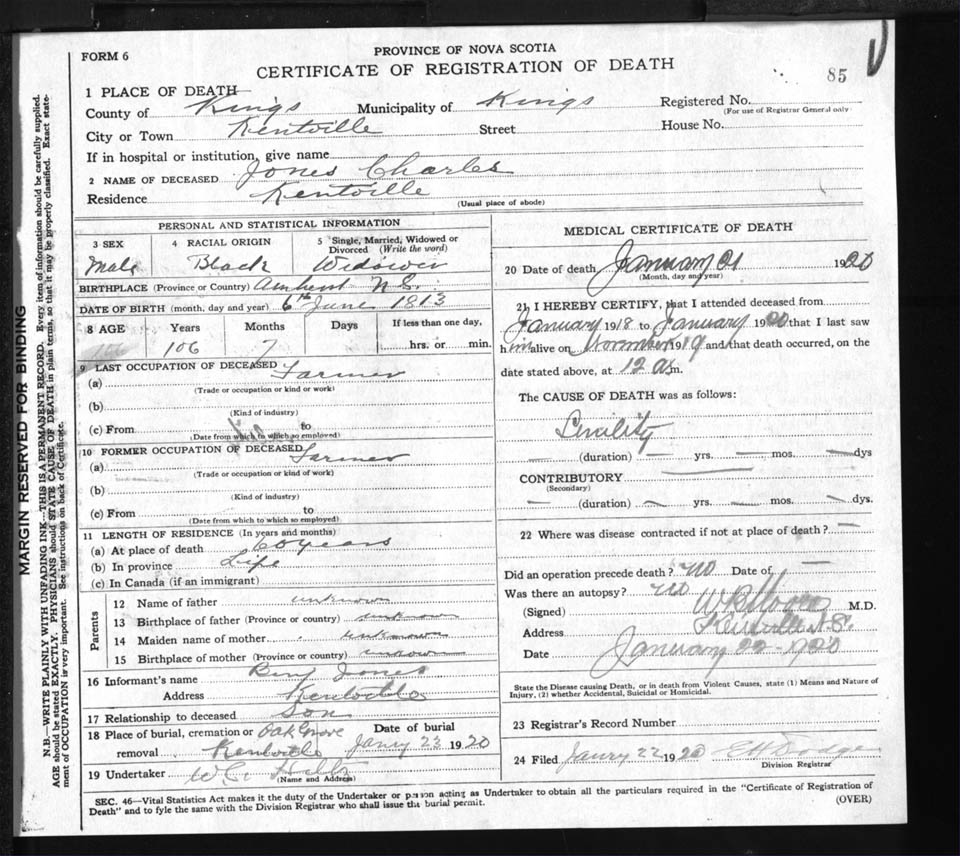 FORM 6
PROVINCE OF NOVA SCOTIA
CERTIFICATE OF REGISTRATION OF DEATH
85
1 PLACE OF DEATH
County of Kings Municipality of Kings Registered No.
(For use of Registrar General only
City or Town Kentville Street House No.
If in hospital or institution, give name
2 NAME OF DECEASED Jones Charles
Residence Kentville
(Usual place of abode)
PERSONAL AND STATISTICAL INFORMATION
3 SEX 4 RACIAL ORIGIN 5 Single, Married, Widowed or Divorced (Write the word)
Male Black Widower
BIRTHPLACE (Province or Country) Amherst N.S.
DATE OF BIRTH (month, day and year) 6th June 1813
8 AGE Years Months Days If less than one day,
106 7 hrs. or min.
9 LAST OCCUPATION OF DECEASED Farmer
(a)
(Trade or occupation or kind or work)
(b)
(Kind of industry)
(c) From to
(Date from which to which so employed)
10 FORMER OCCUPATION OF DECEASED Farmer
(a)
(Trade or occupation or kind of work)
(b)
(Kind of industry)
(c) From to
(Date from which to which so employed)
11 LENGTH OF RESIDENCE (In years and months)
(a) At place of death 60 years
(b) In province Life
(c) In Canada (if an immigrant)
Parents
12 Name of father unknown
13 Birthplace of father (Province or country) unknown
14 Maiden name of mother unknown
15 Birthplace of mother (Province or country) unknown
16 Informant's name Benj Jones
Address Kentville
17 Relationship to deceased Son
18 Place of burial, cremation or Oak Grove Date of burial
removal Kentville Janry 23 1920
19 Undertaker W C
(Name and Address)
MEDICAL CERTIFICATE OF DEATH
20 Date of death January 21 1920
(Month, day and year)
21 I HEREBY CERTIFY, that I attended deceased from
January 1918 to January 1920 that I last saw
him alive on November 1919 and that death occurred, on the
date stated above, at 12 a m.
The CAUSE OF DEATH was as follows:
Senility
(duration) yrs. mos. dys
CONTRIBUTORY
(Secondary)
(duration) yrs. mos. dys.
22 Where was disease contracted if not at place of death?
Did an operation precede death? no Date of
Was there an autopsy? no
(Signed) M.D.
Address Kentville N.S.
Date January 22 - 1920
State the Disease causing Death, or in death from Violent Causes, state (1) Means and Nature of
Injury, (2) whether Accidental, Suicidal or Homicidal.
23 Registrar's Record Number
24 Filed Janry 22 1920 E H Dodge
Division Registrar
SEC. 46—Vital Statistics Act makes it the duty of the Undertaker or person acting as Undertaker to obtain all the particulars required in the "Certificate of Registration of
Death" and to fyle the same with the Division Registrar who shall issue the burial permit.
(OVER)
MARGIN RESERVED FOR BINDING
N.B.—WRITE PLAINLY WITH UNFADING INK—THIS IS A PERMANENT RECORD. Every item of information should be carefully supplied.
AGE should be stated EXACTLY. PHYSICIANS should STATE CAUSE OF DEATH in plain terms, so that it may be properly classified. Exact state-
ment of OCCUPATION is very important. See instructions on back of Certificate.